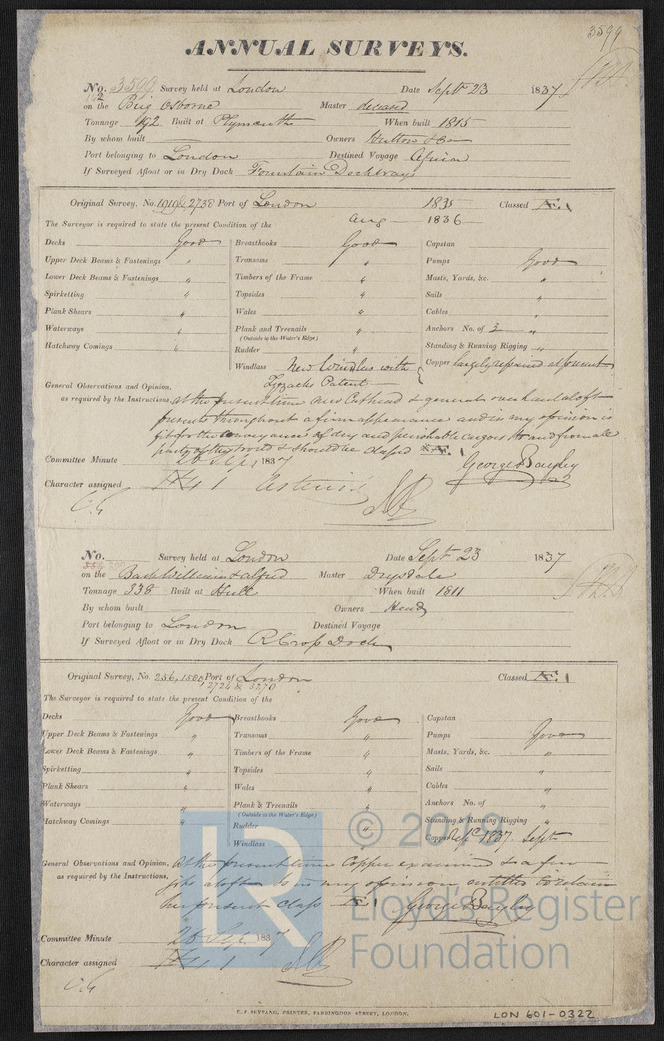 3599
ANNUAL SURVEYS.
No. 3599 Survey held at London Date Sept 23 1837
on the Brig Osborne Master deceased
Tonnage 192 Built at Plymouth When built 1815
By whom built Owners Hutton & Co
Port belonging to London Destined Voyage African
If Surveyed Afloat or in Dry Dock Fountain Dock
Original Survey, No. 2738 Port of London 1835 Classed Æ. 1
Aug 1836
The Surveyor is required to state the present Condition of the
Decks Good Breasthooks Good Capstan
Upper Deck Beams & Fastenings " Transoms " Pumps Good
Lower Deck Beams & Fastenings " Timbers of the Frame " Masts, Yards, &c. "
Spirketting " Topsides " Sails "
Plank Shears " Wales " Cables "
Waterways " Plank and Treenails " Anchors No. of 3 "
(Outside in the Water's Edge)
Hatchway Comings " Rudder " Standing & Running Rigging "
Windlass New Windlass with Copper largely repaired at present
Patent
General Observations and Opinion, at the present time new Cathead & general overhaul aloft
as required by the Instructions, presents throughout a firm appearance and in my opinion is
fit for the conveyance of dry and perishable cargoes to and from all
parts of the World & should be classed Æ. 1
Committee Minute 26 Sept. 1837 George Bayley
Character assigned Æ 1
No. Survey held at London Date Sept 23 1837
on the Bark William & Alfred Master Drysdale
Tonnage 338 Built at Hull When built 1811
By whom built Owners
Port belonging to London Destined Voyage
If Surveyed Afloat or in Dry Dock R Cross Dock
Original Survey, No. 256, 1580 Port of London Classed Æ. 1
2724 & 3270
The Surveyor is required to state the present Condition of the
Decks Good Breasthooks Good Capstan
Upper Deck Beams & Fastenings " Transoms " Pumps Good
Lower Deck Beams & Fastenings " Timbers of the Frame " Masts, Yards, &c. "
Spirketting " Topsides " Sails "
Plank Shears " Wales " Cables "
Waterways " Plank & Treenails " Anchors No. of "
(Outside in the Water's Edge)
Hatchway Comings " Rudder " Standing & Running Rigging "
Windlass " Coppered 1837 Sept
General Observations and Opinion, at the present time Copper examined & a few
as required by the Instructions, aloft is in my opinion entitled to retain
her present class Æ 1 George Bayley
Committee Minute 26 Sept. 1837
Character assigned Æ 1
LR
Lloyd's Register
Foundation
PRINTER, FARRINGDON STREET, LONDON.
LON 601-0322